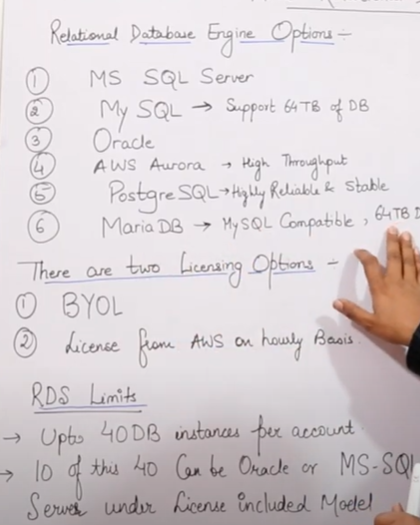 Relational Database Engine Options :-
① MS SQL Server
② MySQL → Support 64TB of DB
③ Oracle
④ AWS Aurora → High Throughput
⑤ PostgreSQL → Highly Reliable & Stable
⑥ MariaDB → MySQL Compatible, 64TB D
There are two Licensing Options :-
① BYOL
② License from AWS on hourly Basis.
RDS Limits
→ Upto 40 DB instances per account.
→ 10 of this 40 Can be Oracle or MS-SQL
Server under License included Model